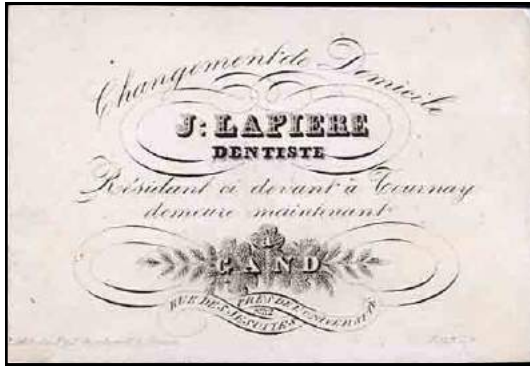 Changement de Domicile
J: LAPIERE
DENTISTE
Résidant ci devant à Tournay
demeure maintenant
à
GAND
RUE DES JESUITES
PRÈS DE L'UNIVERSITÉ